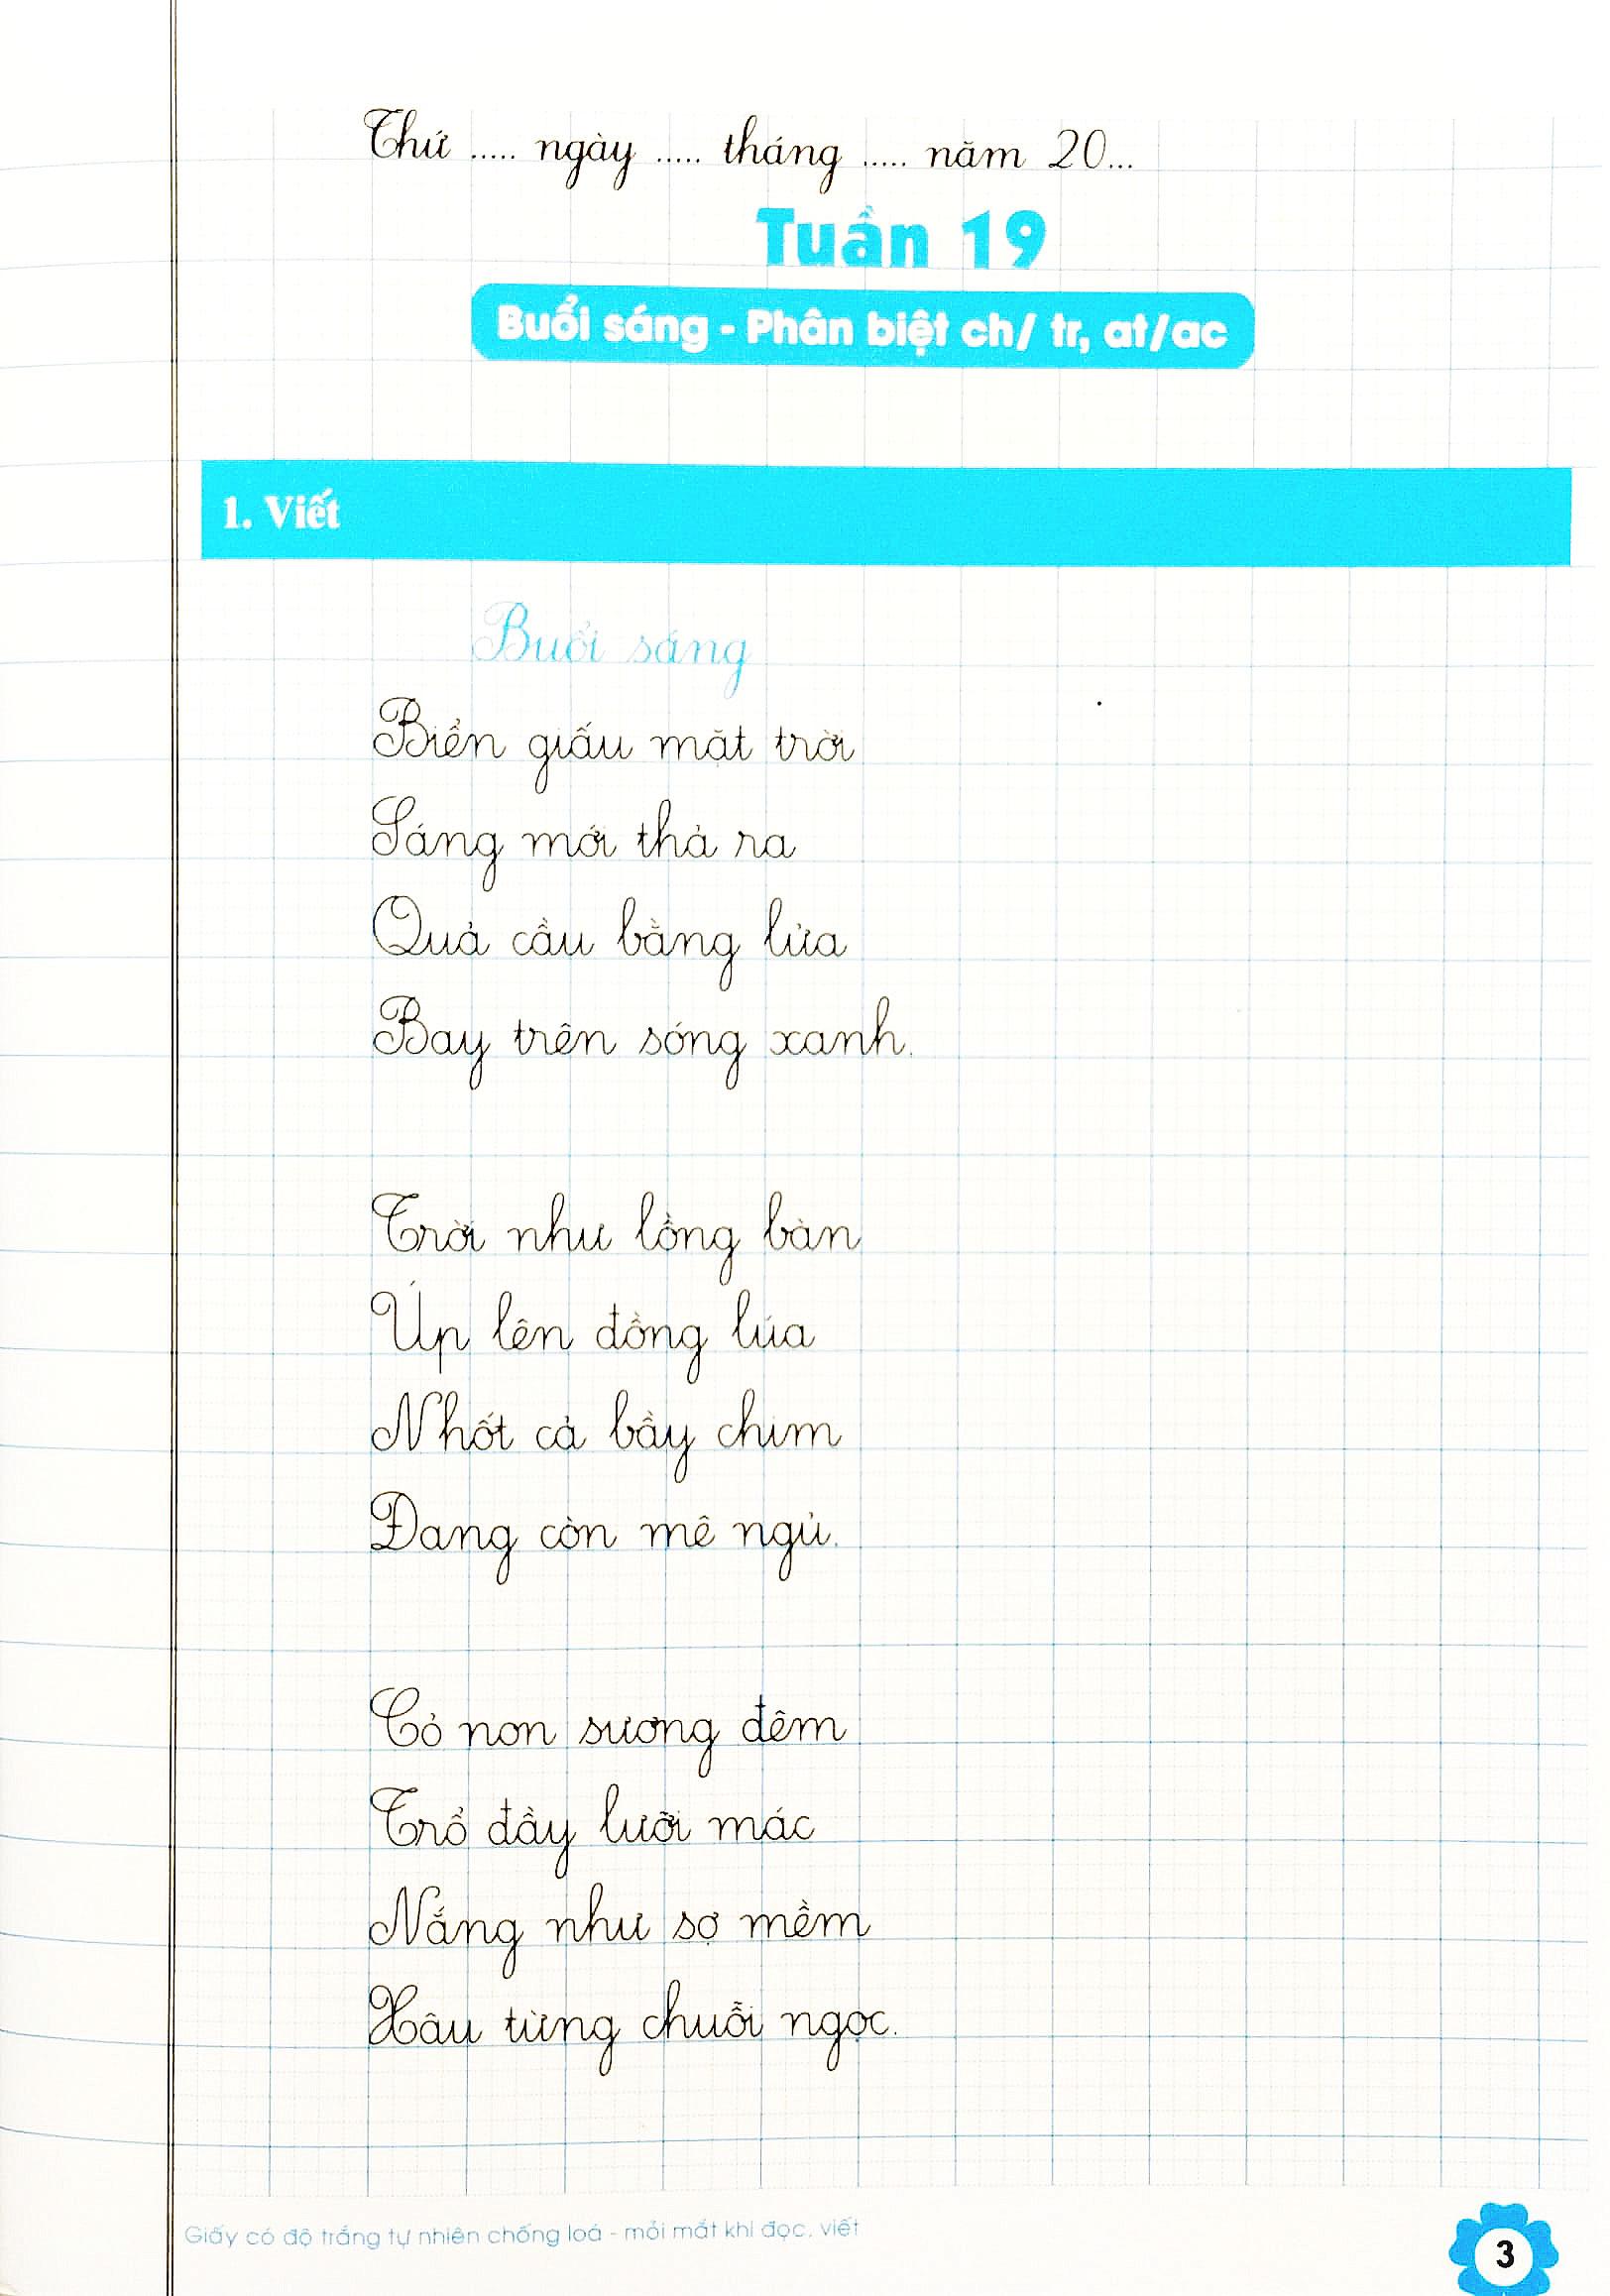 Thứ ..... ngày ..... tháng ..... năm 20...
Tuần 19
Buổi sáng - Phân biệt ch/ tr, at/ac
1. Viết
Buổi sáng
Biển giấu mặt trời
Sáng mới thả ra
Quả cầu bằng lửa
Bay trên sóng xanh.
Trời như lồng bàn
Úp lên đồng lúa
Nhốt cả bầy chim
Đang còn mê ngủ.
Cỏ non sương đêm
Trổ đầy lưỡi mác
Nắng như sợ mềm
Xâu từng chuỗi ngọc.
Giấy có độ trắng tự nhiên chống loá - mỏi mắt khi đọc, viết
3